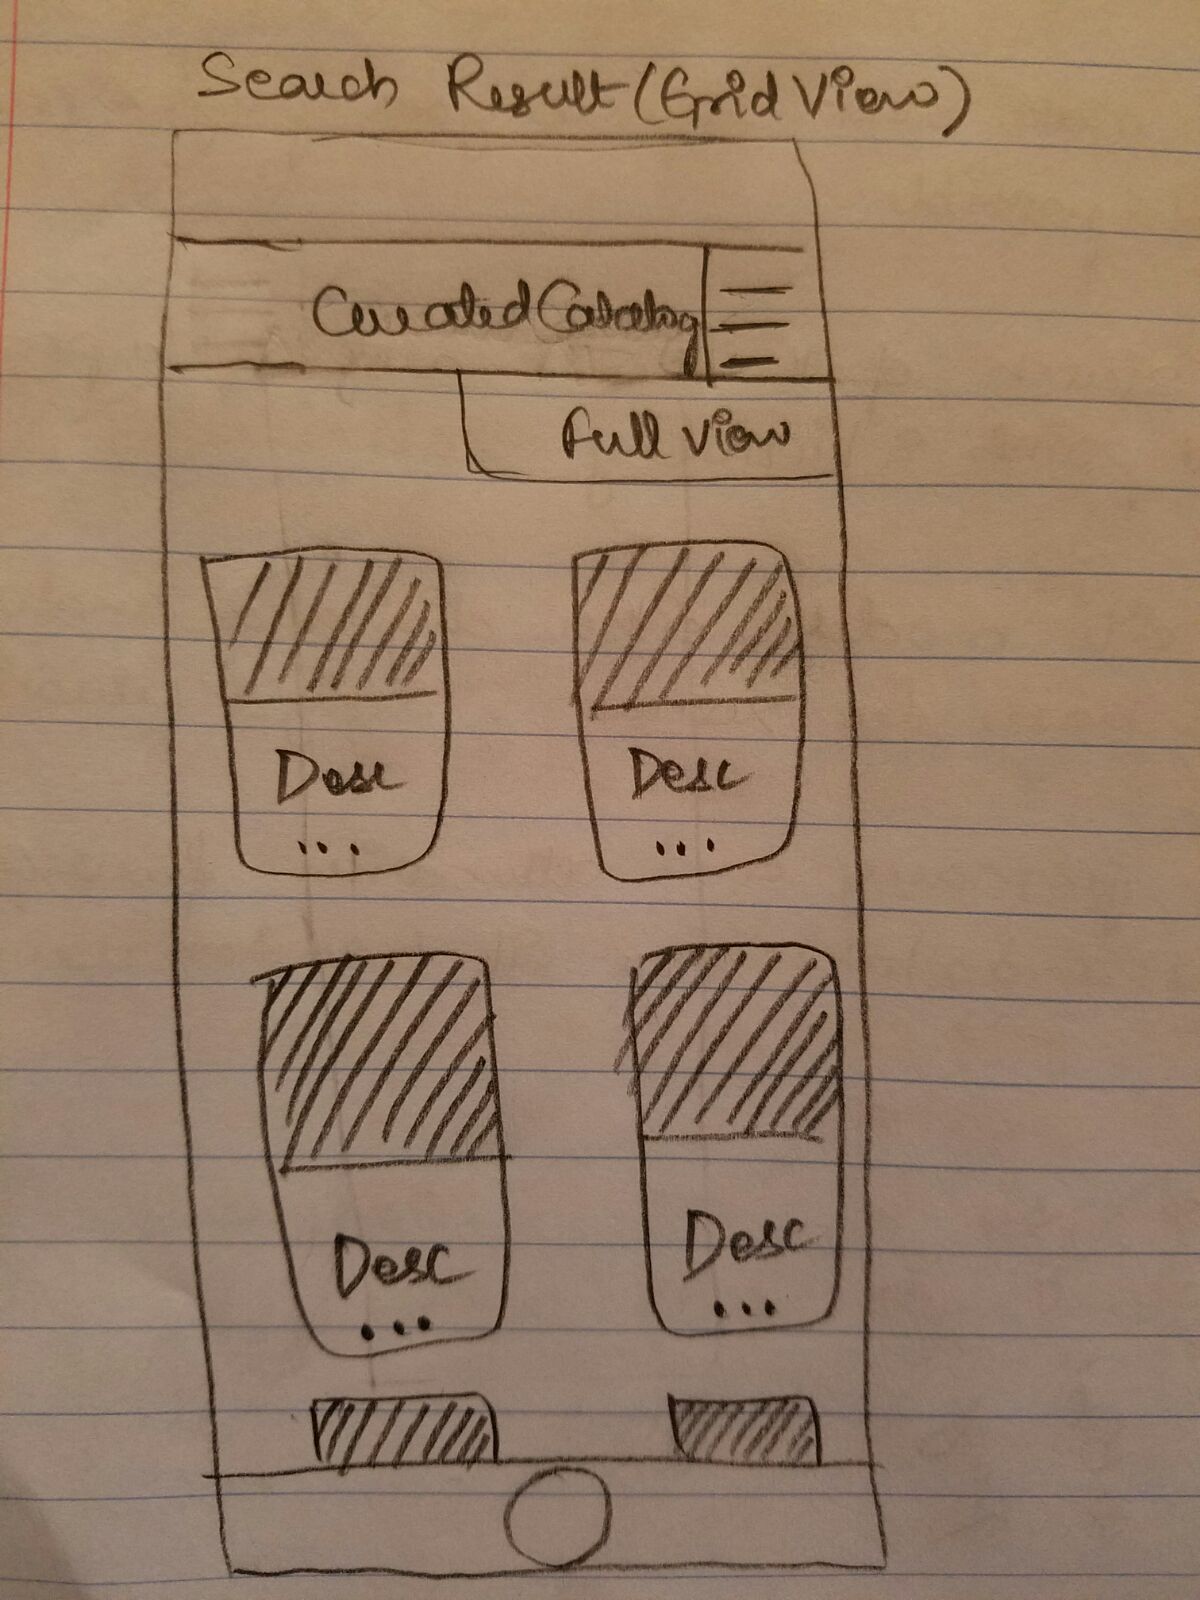 Search Result (Grid View)
Curated Catalog
Full View
Desc
...
Desc
...
Desc
...
Desc
...